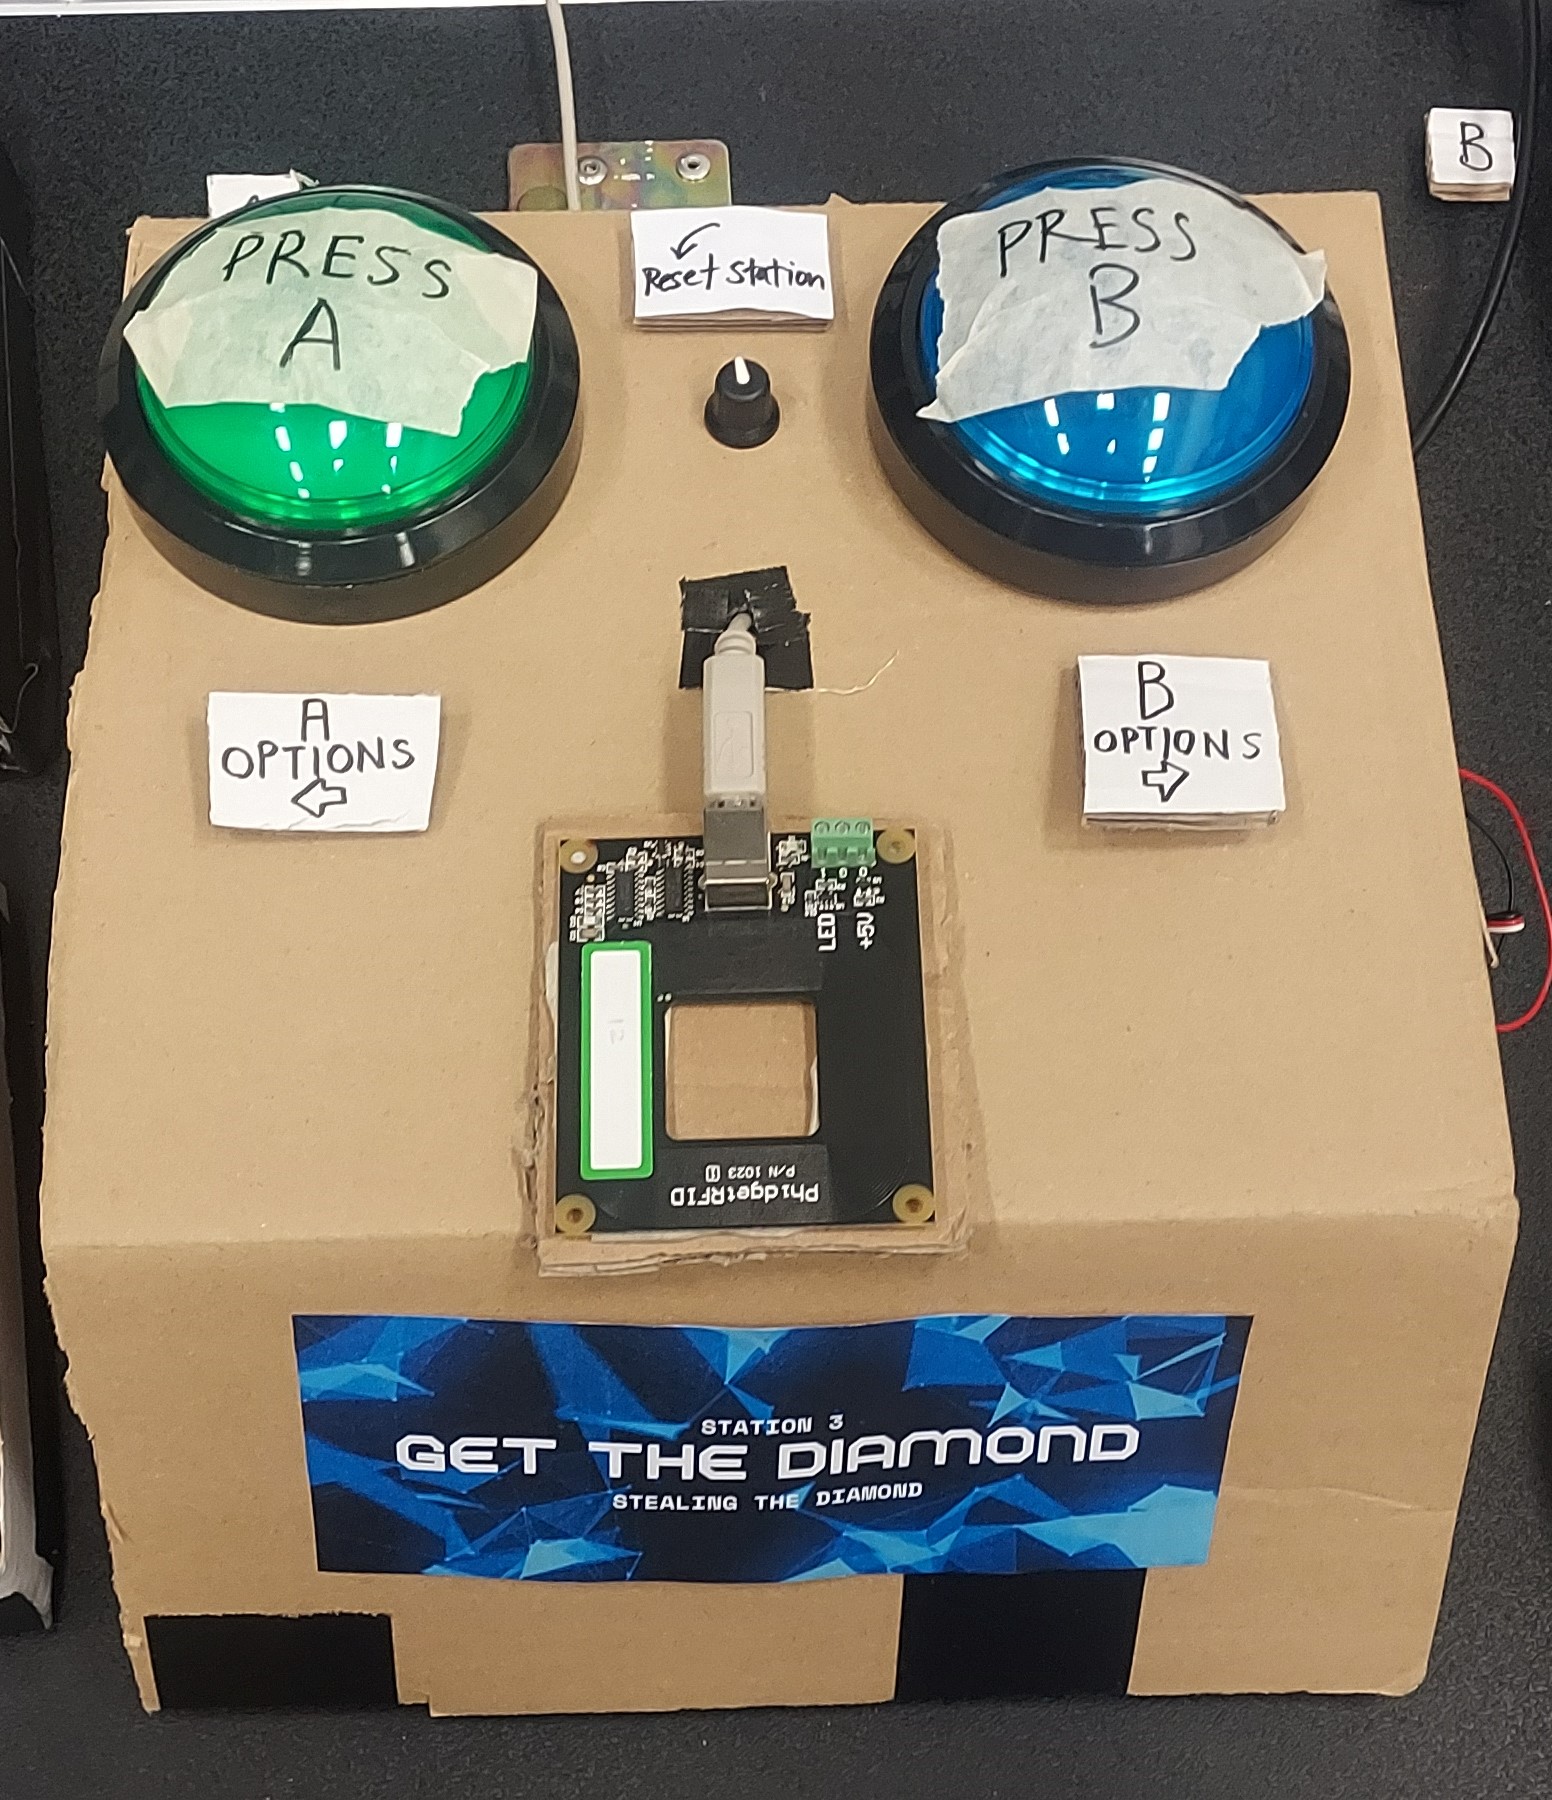 B
PRESS
A
Reset Station
PRESS
B
A
OPTIONS
B
OPTIONS
LED
+5V
12
P/N 1023
PhidgetRFID
STATION 3
GET THE DIAMOND
STEALING THE DIAMOND